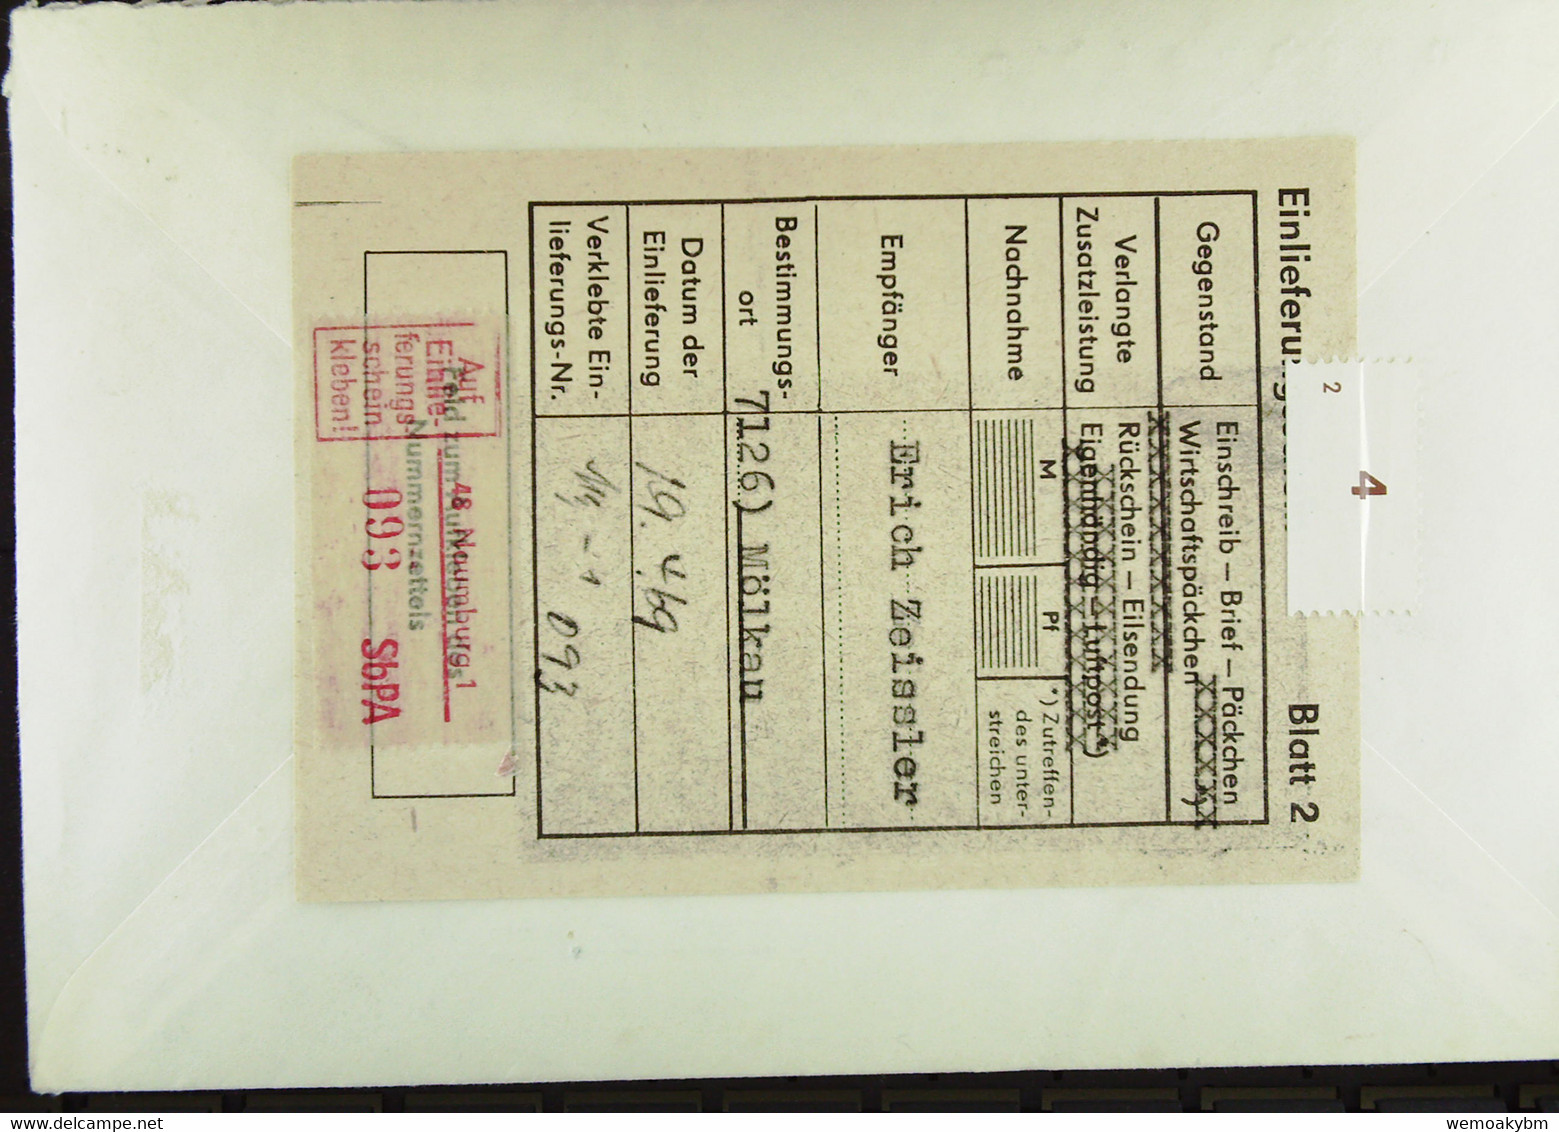 Blatt 2
2
4
Gegenstand
Einschreib – Brief – Päckchen
Wirtschaftspäckchen xxxxxxx
Verlangte
Zusatzleistung
Rückschein – Eilsendung
Eigenhändig – Luftpost *)
Nachnahme
M
Pf
*) Zutreffen-
des unter-
streichen
Empfänger
Erich Zeissler
Bestimmungs-
ort
7126) Mölkau
Datum der
Einlieferung
19. 4. 69
Verklebte Ein-
lieferungs-Nr.
093
Feld zum Aufkleben des
Nummernzettels
Auf
Einlie-
ferungs-
schein
kleben!
48 Naumburg 1
093 SbPA
www.delcampe.net
wemoakybm